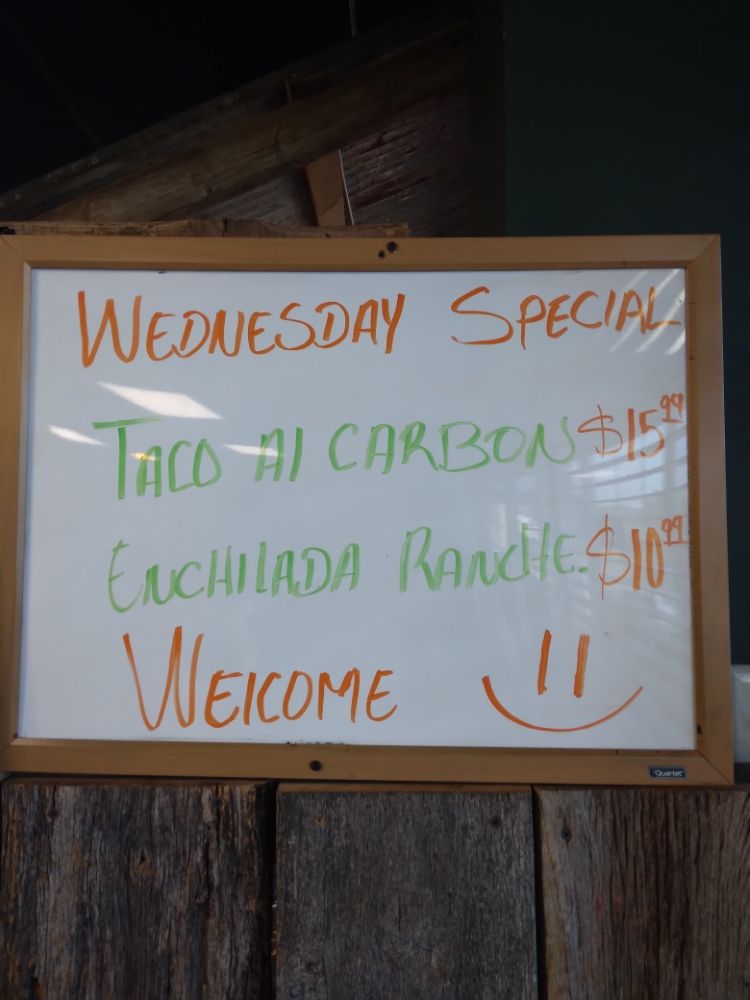 WEDNESDAY SPECIAL
TACO Al CARBON $15.99
ENCHILADA RANCHE. $10.99
WElCOME
Quartet